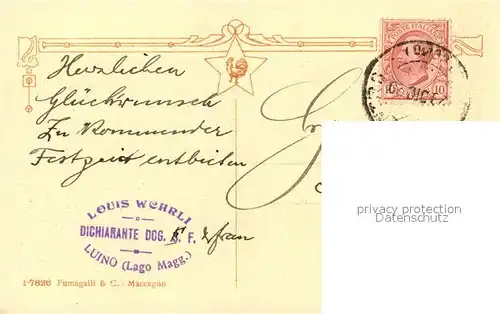 Herzlichen
Glückwunsch
Zu Kommender
Festzeit entbieten
LOUIS WEHRLI
DICHIARANTE DOG. S. F. & frau
LUINO (Lago Magg.)
1-7826 Fumagalli & C. - Maccagno
POSTE ITALIANE
10
privacy protection
Datenschutz